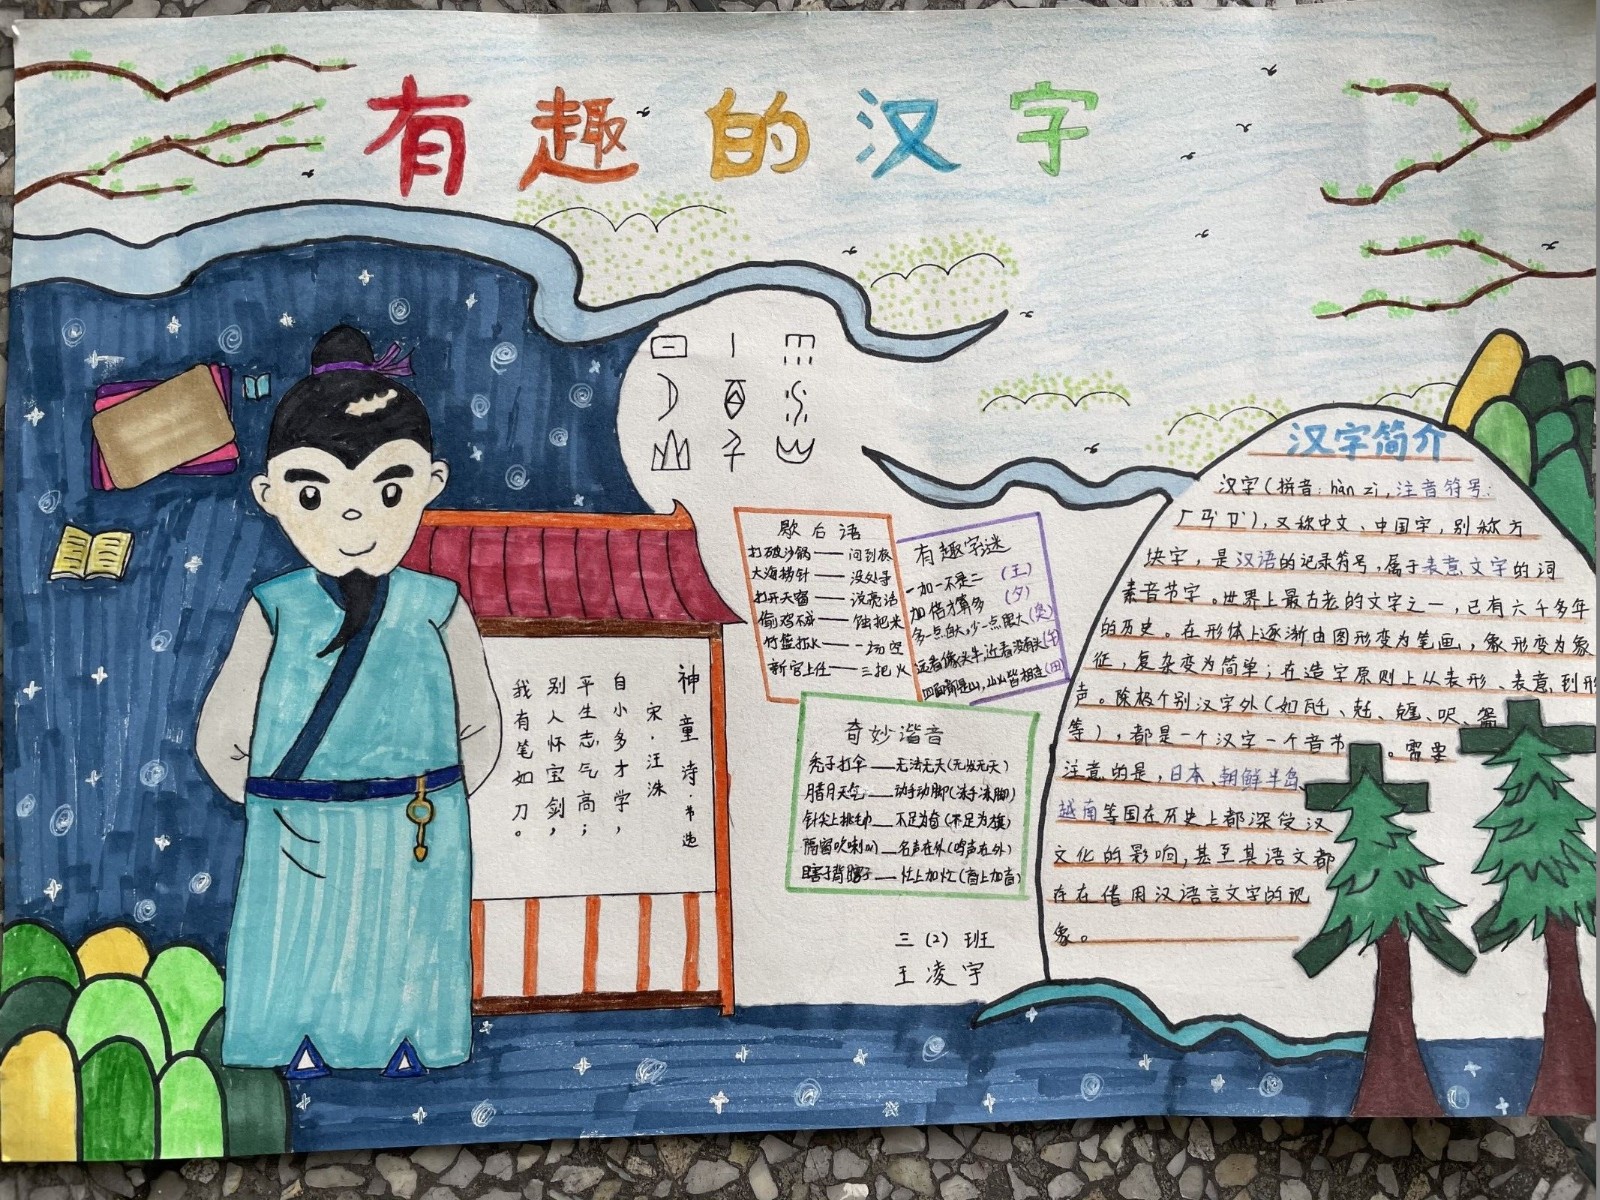 有趣的汉字
歇后语
打破沙锅——问到底
大海捞针——没处寻
打开天窗——说亮话
偷鸡不成——蚀把米
竹篮打水——一场空
新官上任——三把火
有趣字谜
一加一不是二 (王)
加倍才算多 (夕)
多一点自大,少一点
远看像头牛,近看没有头(午)
四面都是山,山山皆相连(田)
神童诗·节选
宋·汪洙
自小多才学,
平生志气高;
别人怀宝剑,
我有笔如刀。
奇妙谐音
秃子打伞——无法无天(无发无天)
腊月天气——动手动脚(冻手冻脚)
针尖上挑毛巾——不足为奇(不足为旗)
隔窗吹喇叭——名声在外(鸣声在外)
瞎子背瞎子——忙上加忙(盲上加盲)
三(2)班
王凌宇
汉字简介
汉字(拼音:hàn zì,注音符号:
ㄏㄢˋㄗˋ),又称中文、中国字,别称方
块字,是汉语的记录符号,属于表意文字的词
素音节字。世界上最古老的文字之一,已有六千多年
的历史。在形体上逐渐由图形变为笔画,象形变为象
征,复杂变为简单;在造字原则上从表形、表意到形
声。除极个别汉字外(如瓩、兛、
等),都是一个汉字一个音节。需要
注意的是,日本、朝鲜半岛、
越南等国在历史上都深受汉
文化的影响,甚至其语文都
存在借用汉语言文字的现
象。